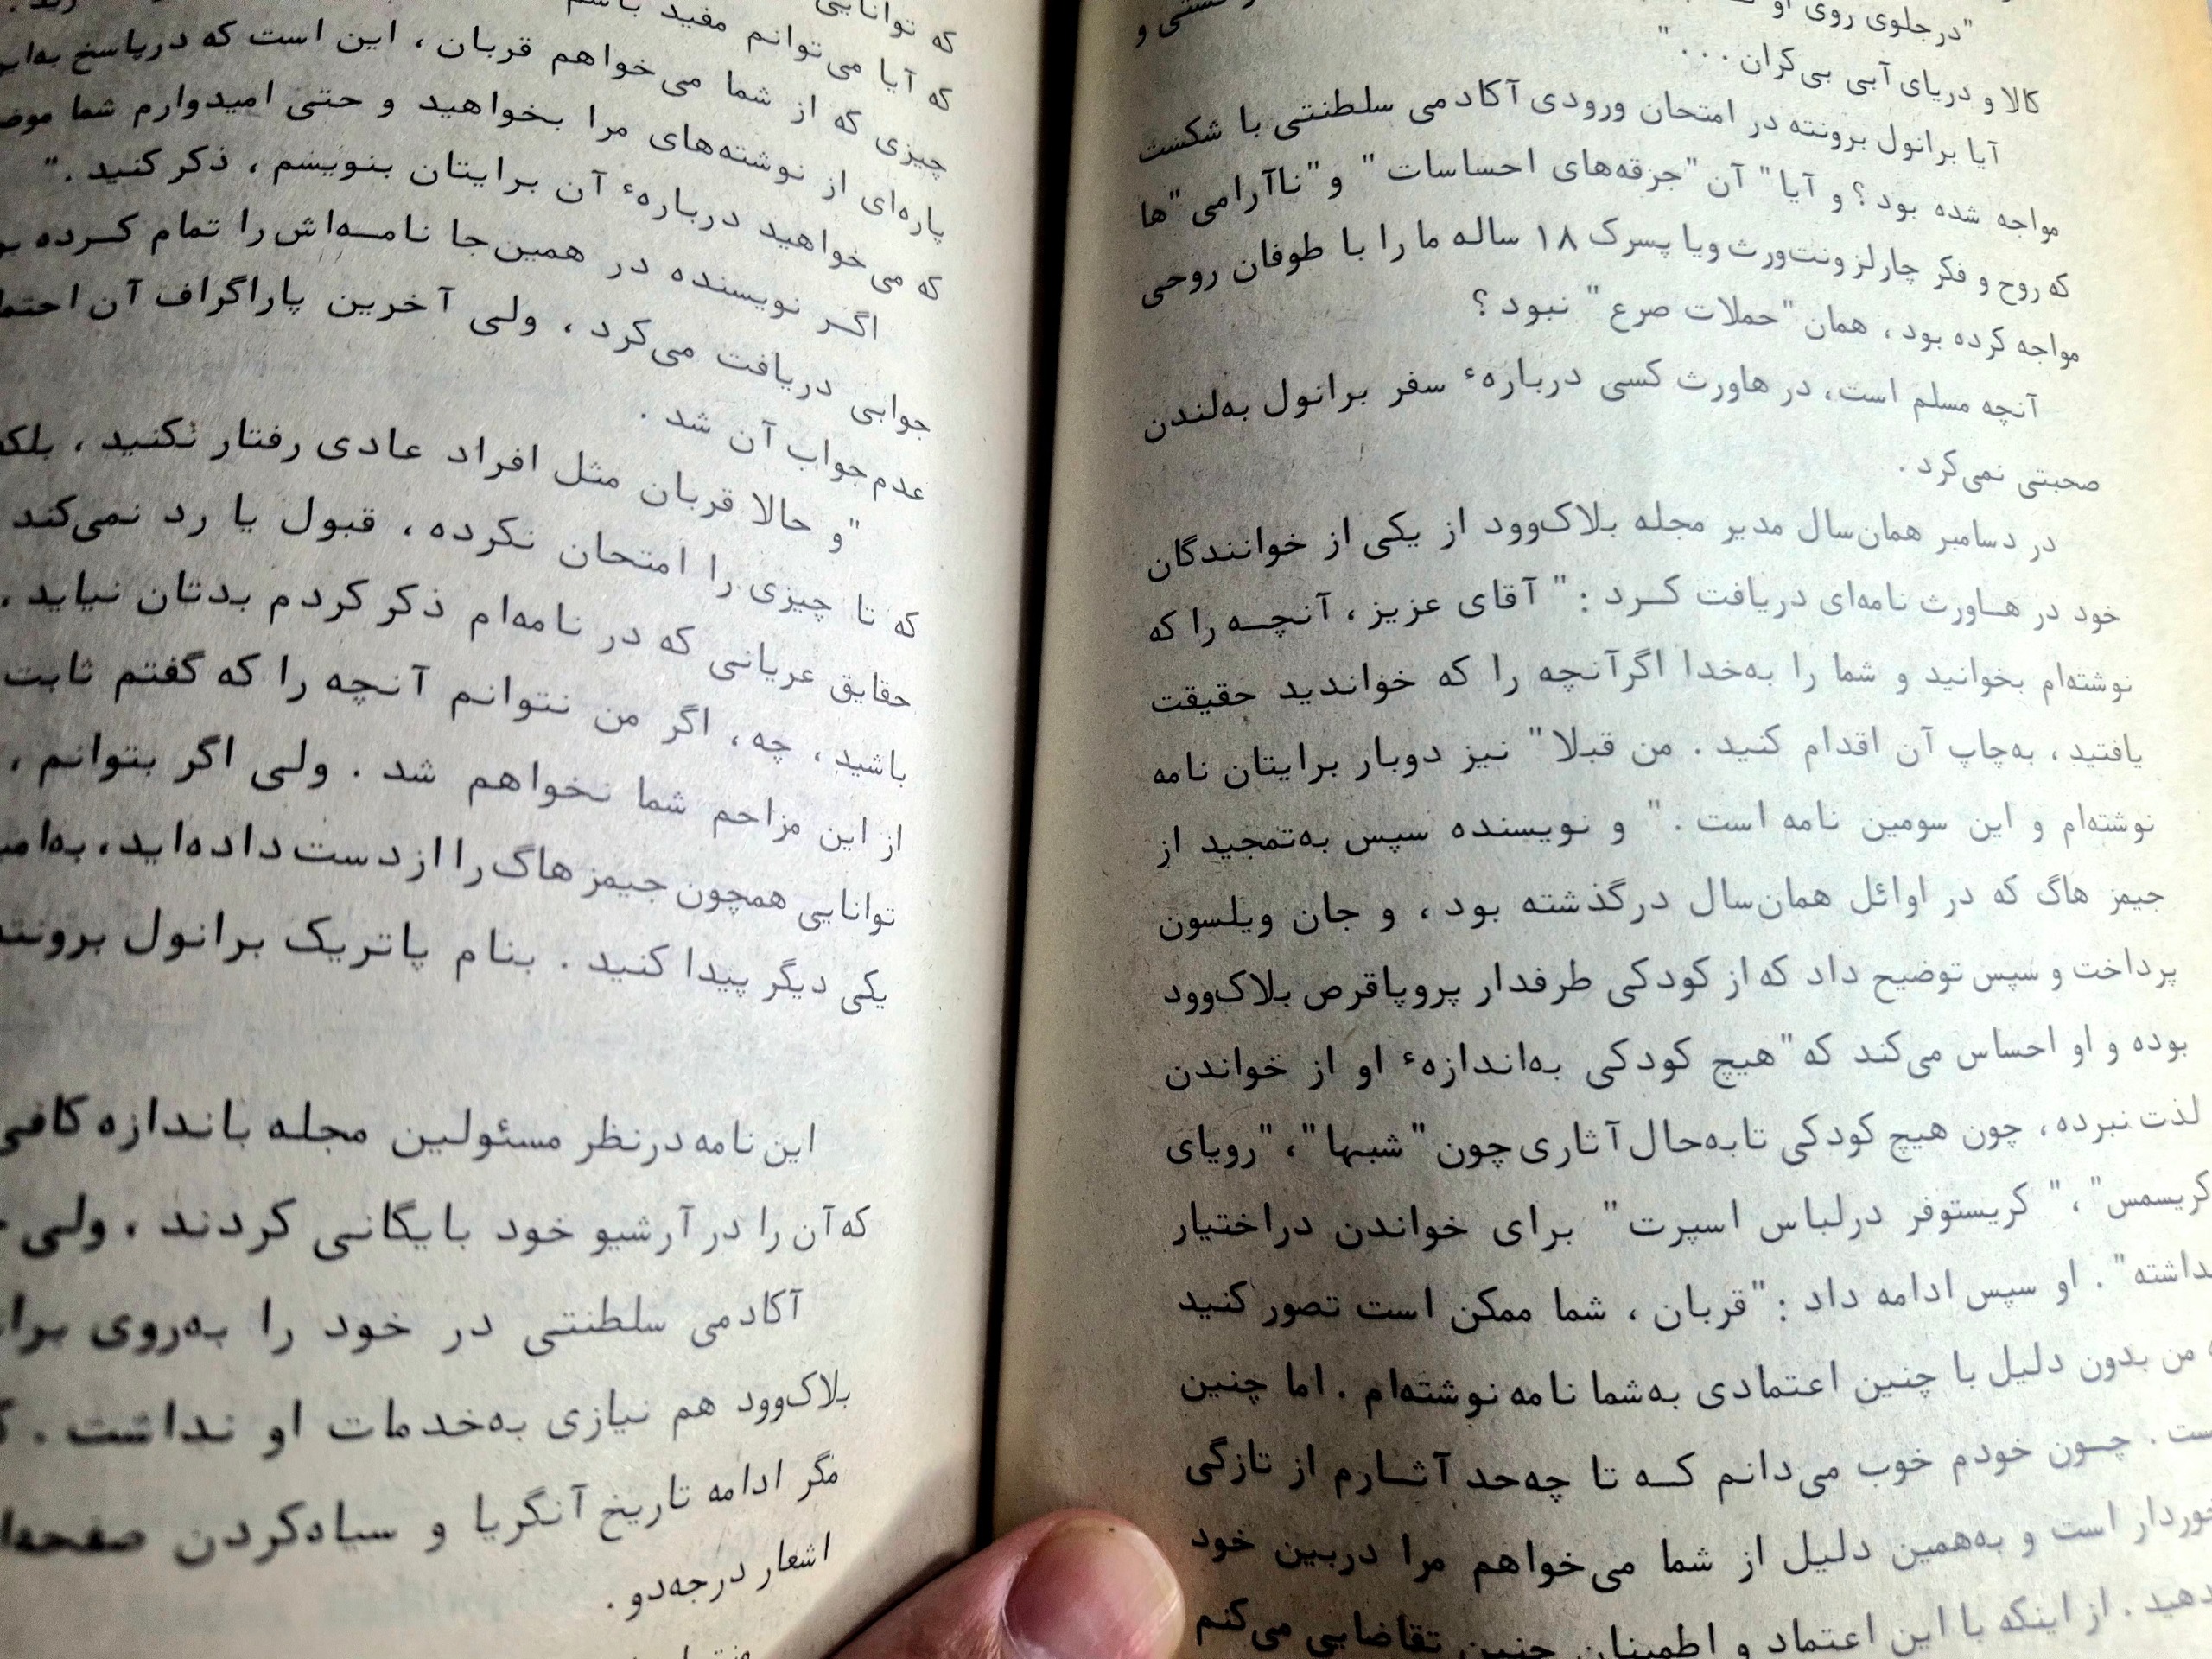 "در جلوی روی او
کالا و دریای آبی بی‌کران . . . "
آیا برانول برونته در امتحان ورودی آکادمی سلطنتی با شکست
مواجه شده بود ؟ و آیا " آن "جرقه‌های احساسات " و "ناآرامی "ها
که روح و فکر چارلز ونت‌ورث ویا پسرک ۱۸ ساله ما را با طوفان روحی
مواجه کرده بود ، همان "حملات صرع " نبود ؟
آنچه مسلم است، در هاورث کسی درباره‌ٔ سفر برانول به‌لندن
صحبتی نمی‌کرد .
در دسامبر همان‌سال مدیر مجله بلاک‌وود از یکی از خوانندگان
خود در هاورث نامه‌ای دریافت کرد : " آقای عزیز ، آنچه را که
نوشته‌ام بخوانید و شما را به‌خدا اگرآنچه را که خواندید حقیقت
یافتید ، به‌چاپ آن اقدام کنید . من قبلا" نیز دوبار برایتان نامه
نوشته‌ام و این سومین نامه است . " و نویسنده سپس به‌تمجید از
جیمز هاگ که در اوائل همان‌سال درگذشته بود ، و جان ویلسون
پرداخت و سپس توضیح داد که از کودکی طرفدار پروپاقرص بلاک‌وود
بوده و او احساس می‌کند که "هیچ کودکی به‌اندازه‌ٔ او از خواندن
لذت نبرده ، چون هیچ کودکی تابه‌حال آثاری چون "شبها" ، "رویای
کریسمس" ، " کریستوفر درلباس اسپرت " برای خواندن دراختیار
داشته" . او سپس ادامه داد : "قربان ، شما ممکن است تصور کنید
من بدون دلیل با چنین اعتمادی به‌شما نامه نوشته‌ام . اما چنین
چون خودم خوب می‌دانم که تا چه‌حد آثارم از تازگی
است و به‌همین دلیل از شما می‌خواهم مرا دربین خود
از اینکه با این اعتماد و اطمینان چنین تقاضایی می‌کنم
که توانایی
که آیا می‌توانم مفید باشم
چیزی که از شما می‌خواهم قربان ، این است که درپاسخ
پاره‌ای از نوشته‌های مرا بخواهید و حتی امیدوارم شما
که می‌خواهید درباره‌ٔ آن برایتان بنویسم ، ذکر کنید . "
اگر نویسنده در همین‌جا نامه‌اش را تمام کرده
جوابی دریافت می‌کرد ، ولی آخرین پاراگراف آن
عدم جواب آن شد .
"و حالا قربان مثل افراد عادی رفتار نکنید ، بلکه
که تا چیزی را امتحان نکرده ، قبول یا رد نمی‌کند
حقایق عریانی که در نامه‌ام ذکر کردم بدتان نیاید .
باشید ، چه ، اگر من نتوانم آنچه را که گفتم ثابت
از این مزاحم شما نخواهم شد . ولی اگر بتوانم ،
توانایی همچون جیمز هاگ را از دست داده‌اید ،
یکی دیگر پیدا کنید . بنام پاتریک برانول برونته
این نامه درنظر مسئولین مجله باندازه کافی
که آن را در آرشیو خود بایگانی کردند ، ولی
آکادمی سلطنتی در خود را به‌روی
بلاک‌وود هم نیازی به‌خدمات او نداشت .
مگر ادامه تاریخ آنگریا و سیاه‌کردن
اشعار درجه‌دو .